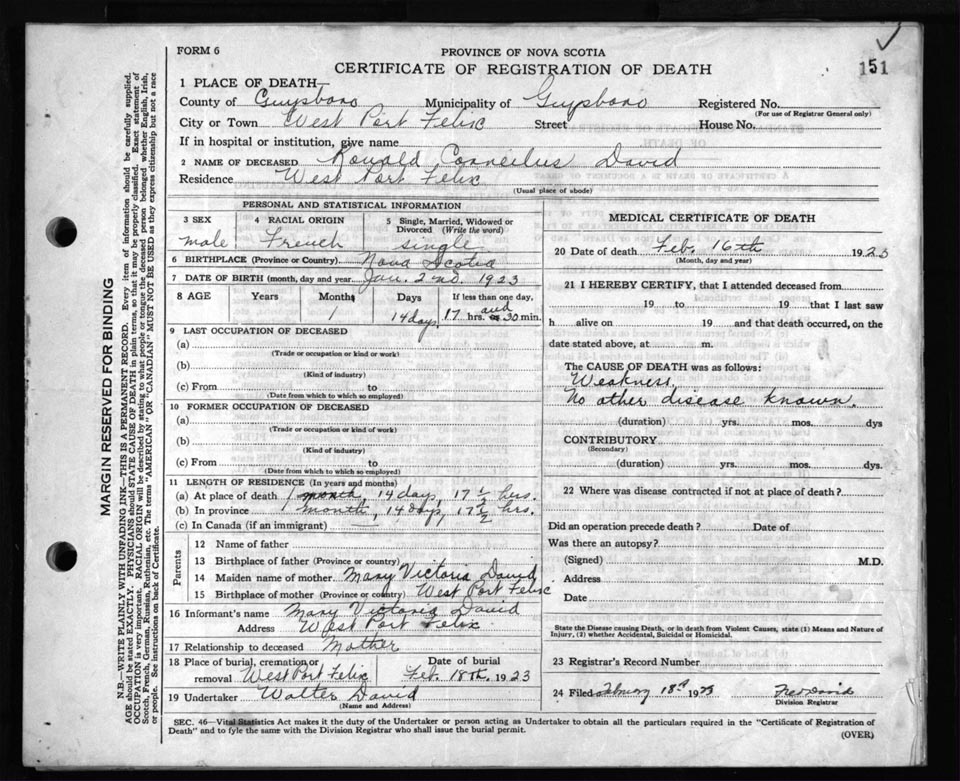 FORM 6
PROVINCE OF NOVA SCOTIA
CERTIFICATE OF REGISTRATION OF DEATH
151
1 PLACE OF DEATH—
County of Guysboro Municipality of Guysboro Registered No.
(For use of Registrar General only)
City or Town West Port Felix Street House No.
If in hospital or institution, give name
2 NAME OF DECEASED Ronald Corneilus David
Residence West Port Felix
(Usual place of abode)
PERSONAL AND STATISTICAL INFORMATION
3 SEX 4 RACIAL ORIGIN 5 Single, Married, Widowed or Divorced (Write the word)
male French single
6 BIRTHPLACE (Province or Country) Nova Scotia
7 DATE OF BIRTH (month, day and year) Jan. 2nd. 1923
8 AGE Years Months Days If less than one day,
1 14 days, 17 hrs. and or 30 min.
9 LAST OCCUPATION OF DECEASED
(a)
(Trade or occupation or kind or work)
(b)
(Kind of industry)
(c) From to
(Date from which to which so employed)
10 FORMER OCCUPATION OF DECEASED
(a)
(Trade or occupation or kind of work)
(b)
(Kind of industry)
(c) From to
(Date from which to which so employed)
11 LENGTH OF RESIDENCE (In years and months)
(a) At place of death 1 month, 14 days, 17 1/2 hrs.
(b) In province 1 month, 14 days, 17 1/2 hrs.
(c) In Canada (if an immigrant)
Parents
12 Name of father
13 Birthplace of father (Province or country)
14 Maiden name of mother Mary Victoria David
15 Birthplace of mother (Province or country) West Port Felix
16 Informant's name Mary Victoria David
Address West Port Felix
17 Relationship to deceased Mother
18 Place of burial, cremation or removal West Port Felix Date of burial Feb. 18th. 1923
19 Undertaker Walter David
(Name and Address)
MEDICAL CERTIFICATE OF DEATH
20 Date of death Feb. 16th 1923
(Month, day and year)
21 I HEREBY CERTIFY, that I attended deceased from
19 to 19 that I last saw
h alive on 19 and that death occurred, on the
date stated above, at m.
The CAUSE OF DEATH was as follows:
Weakness.
No other disease known.
(duration) yrs. mos. dys
CONTRIBUTORY
(Secondary)
(duration) yrs. mos. dys.
22 Where was disease contracted if not at place of death?
Did an operation precede death? Date of
Was there an autopsy?
(Signed) M.D.
Address
Date
State the Disease causing Death, or in death from Violent Causes, state (1) Means and Nature of
Injury, (2) whether Accidental, Suicidal or Homicidal.
23 Registrar's Record Number
24 Filed February 18th 1923 Fred David
Division Registrar
SEC. 46—Vital Statistics Act makes it the duty of the Undertaker or person acting as Undertaker to obtain all the particulars required in the "Certificate of Registration of
Death" and to fyle the same with the Division Registrar who shall issue the burial permit.
(OVER)
MARGIN RESERVED FOR BINDING
N.B.—WRITE PLAINLY WITH UNFADING INK—THIS IS A PERMANENT RECORD. Every item of information should be carefully supplied.
AGE should be stated EXACTLY. PHYSICIANS should STATE CAUSE OF DEATH in plain terms, so that it may be properly classified. Exact statement of
OCCUPATION is very important. RACIAL ORIGIN will be described by stating to what people or tongue the deceased person belonged whether English, Irish,
Scotch, French, German, Russian, Ruthenian, etc. The terms "AMERICAN" OR "CANADIAN" MUST NOT BE USED as they express citizenship but not a race
or people. See instructions on back of Certificate.